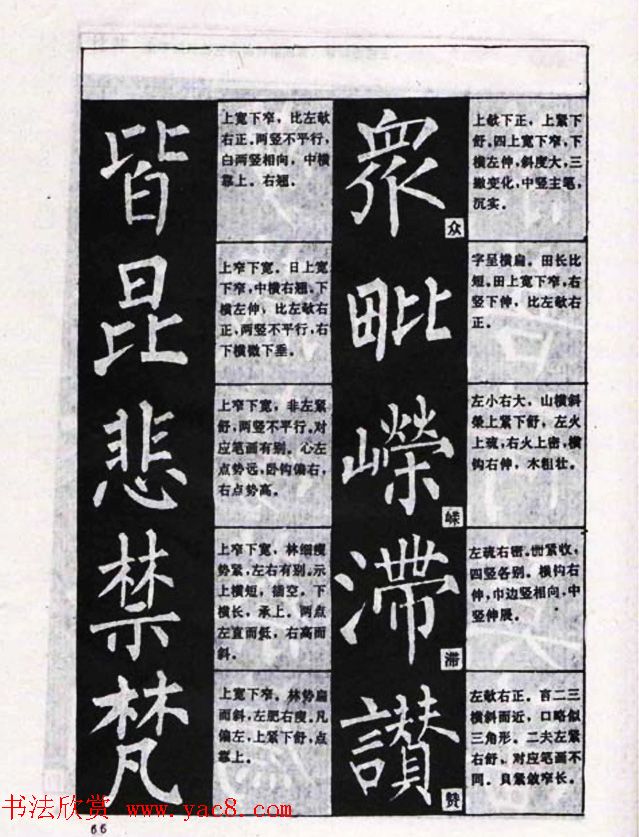 皆
上宽下窄，比左敧
右正。两竖不平行，
白两竖相向，中横
靠上。右翘。
昆
上窄下宽。日上宽
下窄，中横右翘。下
横左伸，比左敧右
正、两竖不平行，右
下横微下垂。
悲
上窄下宽，非左紧
舒，两竖不平行。对
应笔画有别。心左
点势远，卧钩偏右，
右点势高。
禁
上窄下宽，林细瘦
势紧，左右有别。示
上横短，插空。下
横长，承上。两点
左直而低，右高而
斜。
梵
上宽下窄，林势扁
而斜，左肥右瘦。凡
偏左，上紧下舒，点
靠上。
眾
众
上敧下正，上紧下
舒。四上宽下窄，下
横左伸，斜度大，三
撇变化，中竖主笔，
沉实。
毗
字呈横扁。田长比
短。田上宽下窄，右
竖下伸，比左敧右
正。
嶸
嵘
左小右大，山横斜
荣上紧下舒，左火
上疏，右火上密，横
钩右伸，木粗壮。
滯
滞
左疏右密。紧收，
四竖各别。横钩右
伸，巾边竖相向，中
竖伸展。
讃
赞
左敧右正。言二三
横斜而近，口略似
三角形。二夫左紧
右舒、对应笔画不
同。贝紧敛窄长。
书法欣赏 www.yac8.com
66